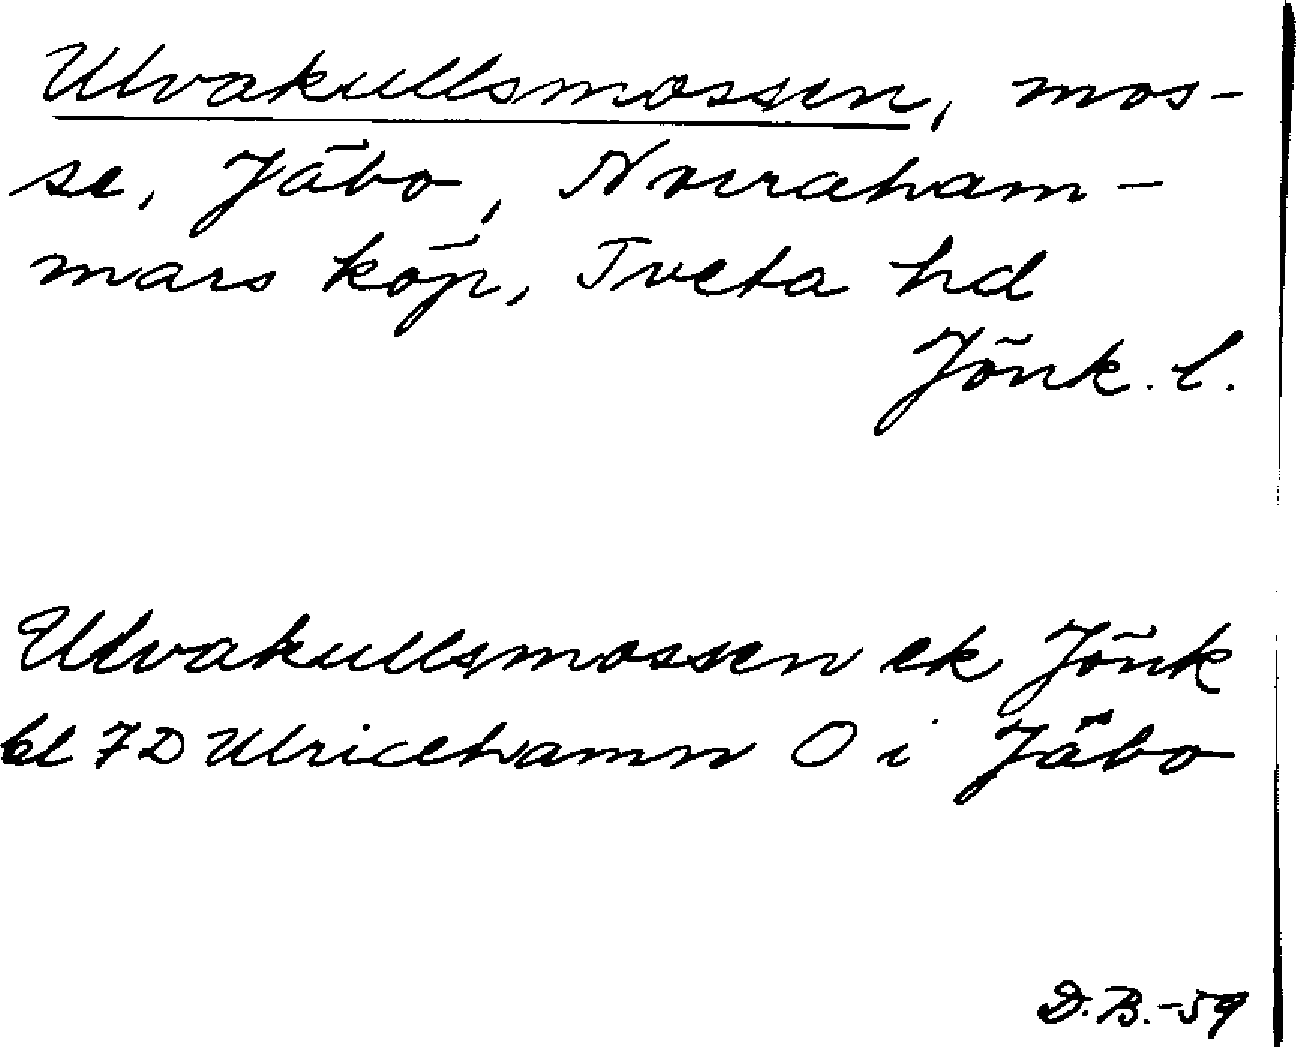 Ulvakullsmossen, mos-
se, Jäbo, Norraham-
mars köp, Tveta hd
Jönk. l.
Ulvakullsmossen ek Jönk
bl 7D Ulricehamn O i Jäbo
D.B.-59